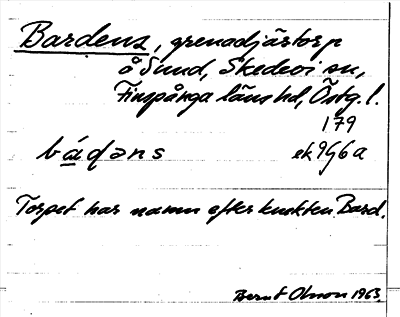 Bardens, grenadjärstorp
å Sund, Skedevi sn,
Finspånga läns hd, Östg. l.
179
bádəns ek 9g6a
Torpet har namn efter knekten Bard.
Bernt Olsson 1963.